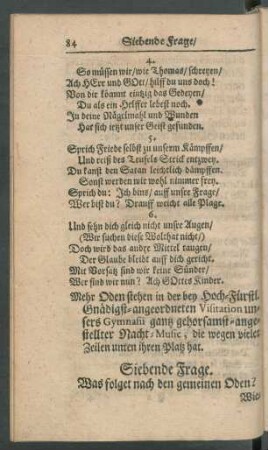 84 Siebende Frage/
4.
So müssen wir/wie Thomas/schreyen/
Ach HErr und GOtt/hilff du uns doch!
Von dir kömmt eintzig das Gedeyen/
Du als ein Helffer lebest noch.
In deine Nägelmahl und Wunden
Hat sich jetzt unser Geist gefunden.
5.
Sprich Friede selbst zu unserm Kämpffen/
Und reiß des Teufels Strick entzwey.
Du kanst den Satan leichtlich dämpffen.
Sonst werden wir wohl nimmer frey.
Sprich du: Ich bins/auff unser Frage/
Wer bist du? Drauff weicht alle Plage.
6.
Und sehn dich gleich nicht unser Augen/
(Wir suchen diese Wolthat nicht/)
Doch wird das andre Mittel taugen/
Der Glaube bleibt auff dich gericht.
Mit Vorsatz sind wir keine Sünder/
Wer sind wir nun? Ach GOttes Kinder.
Mehr Oden stehen in der bey Hoch-Fürstl.
Gnädigst-angeordneten Visitation un-
sers Gymnasii gantz gehorsamst-ange-
stellter Nacht-Music, die wegen vieler
Zeilen unten ihren Platz hat.
Siebende Frage.
Was folget nach den gemeinen Oden?
Wie